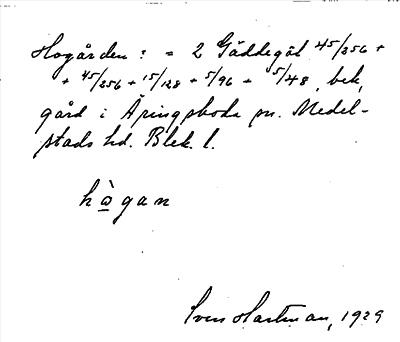 Hogården: = 2 Gäddegöl 45/256 +
+ 45/256 + 15/128 + 5/96 + 5/48, bek,
gård i Äringsboda sn. Medel-
stads hd. Blek. l.
hògan
Sven Hartman, 1929